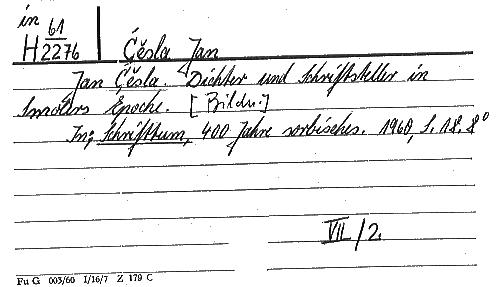 in
H 61/2276 Ćěsla Jan
Jan Ćěsla. Dichter und Schriftsteller in
Smolers Epoche. [Bildn.]
In: Schrifttum, 400 Jahre sorbisches. 1960, S. 18. 8°
VII/2
Fu G 003/60 I/16/7 Z 179 C